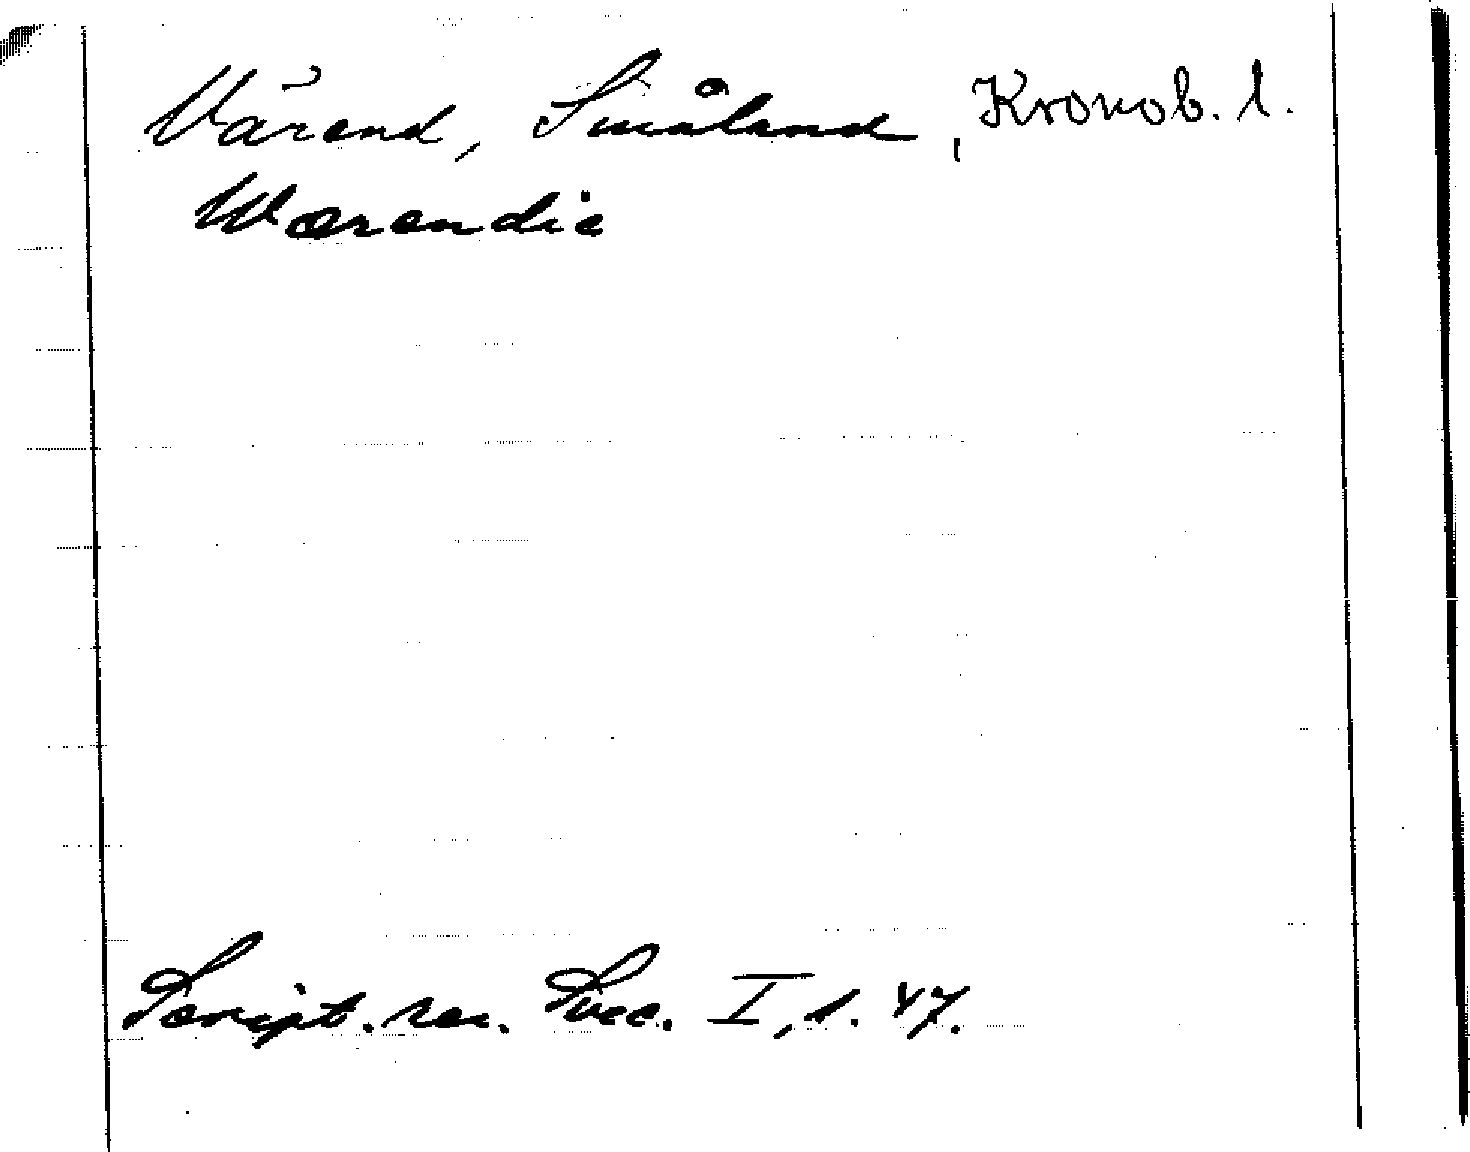 Värend, Småland, Kronob. l.
Wærendie
Script. rer. Svec. I, s. 47.